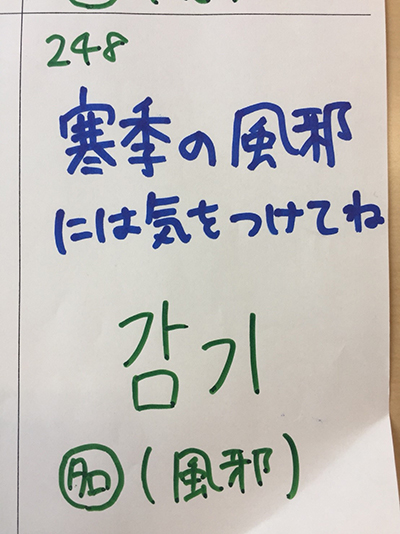 248
寒季の風邪
には気をつけてね
감기
名(風邪)